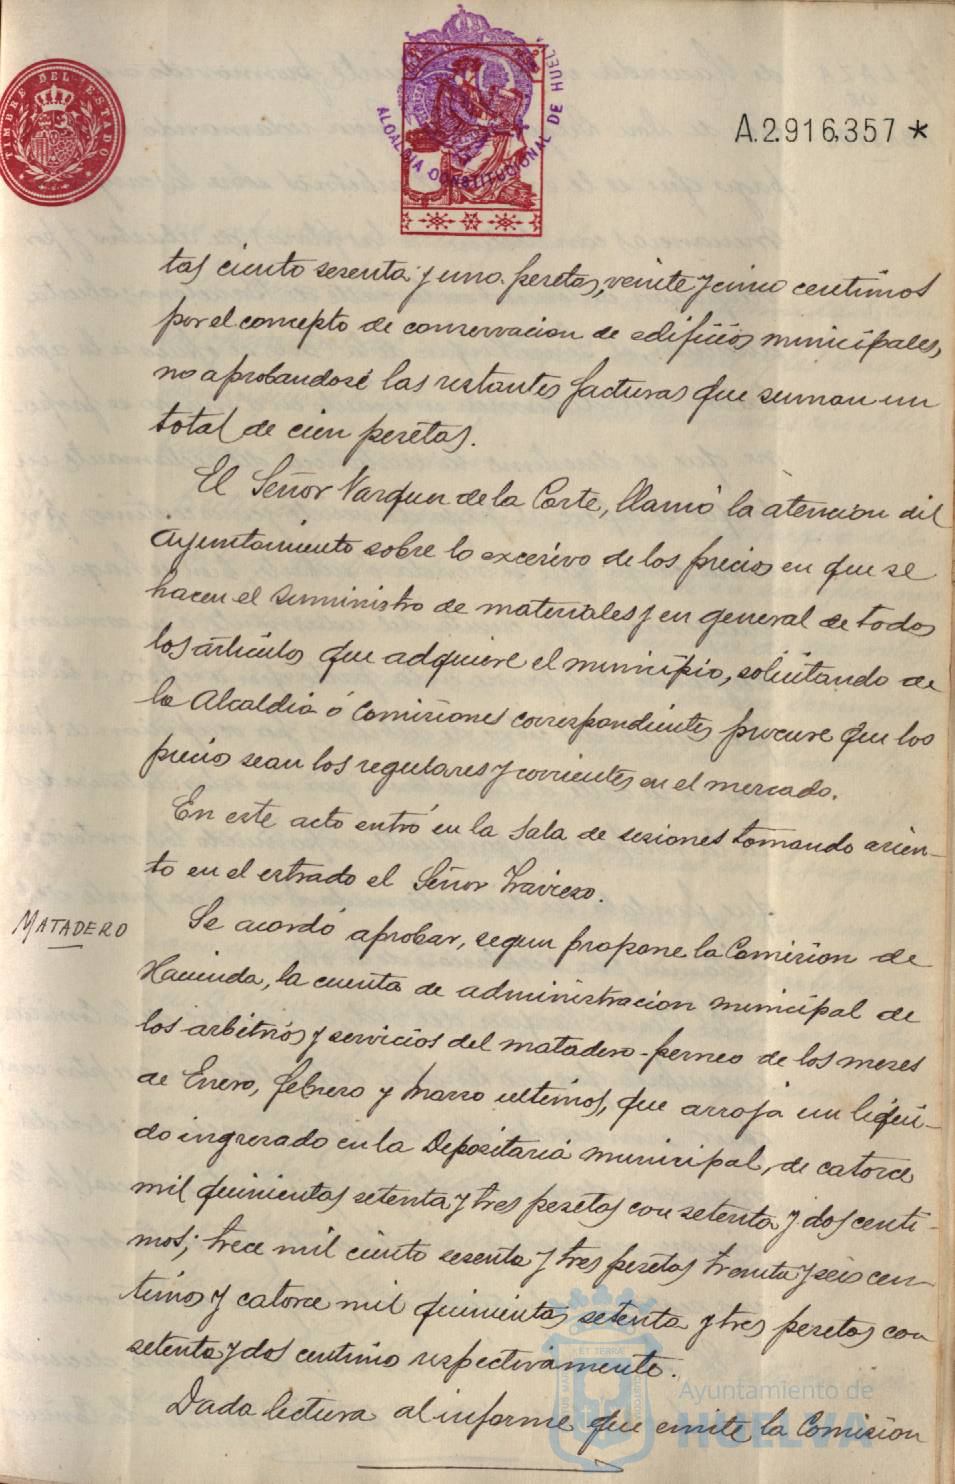 TIMBRE DEL ESTADO
ALCALDIA CONSTITUCIONAL DE HUELVA
A.2.916,357 *
tas ciento sesenta y una pesetas, veinte y cinco centimos
por el concepto de conservacion de edificios municipales,
no aprobandose las restantes facturas que suman un
total de cien pesetas.
El Señor Vazquez de la Corte, llamó la atencion del
Ayuntamiento sobre lo excesivo de los precios en que se
hacen el suministro de materiales y en general de todos
los articulos que adquiere el municipio, solicitando de
la Alcaldia ó Comisiones correspondientes procure que los
precios sean los regulares y corrientes en el mercado.
En este acto entró en la Sala de sesiones tomando asien-
to en el estrado el Señor Travieso.
MATADERO
Se acordó aprobar, segun propone la Comision de
Hacienda, la cuenta de administracion municipal de
los arbitrios y servicios del matadero-perneo de los meses
de Enero, febrero y Marzo ultimos, que arroja un liqui-
do ingresado en la Depositaria municipal, de catorce
mil quinientas setenta y tres pesetas con setenta y dos centi-
mos; trece mil ciento sesenta y tres pesetas treinta y seis cen-
timos y catorce mil quinientas setenta y tres pesetas con
setenta y dos centimos respectivamente.
Dada lectura al informe que emite la Comision
Ayuntamiento de
HUELVA